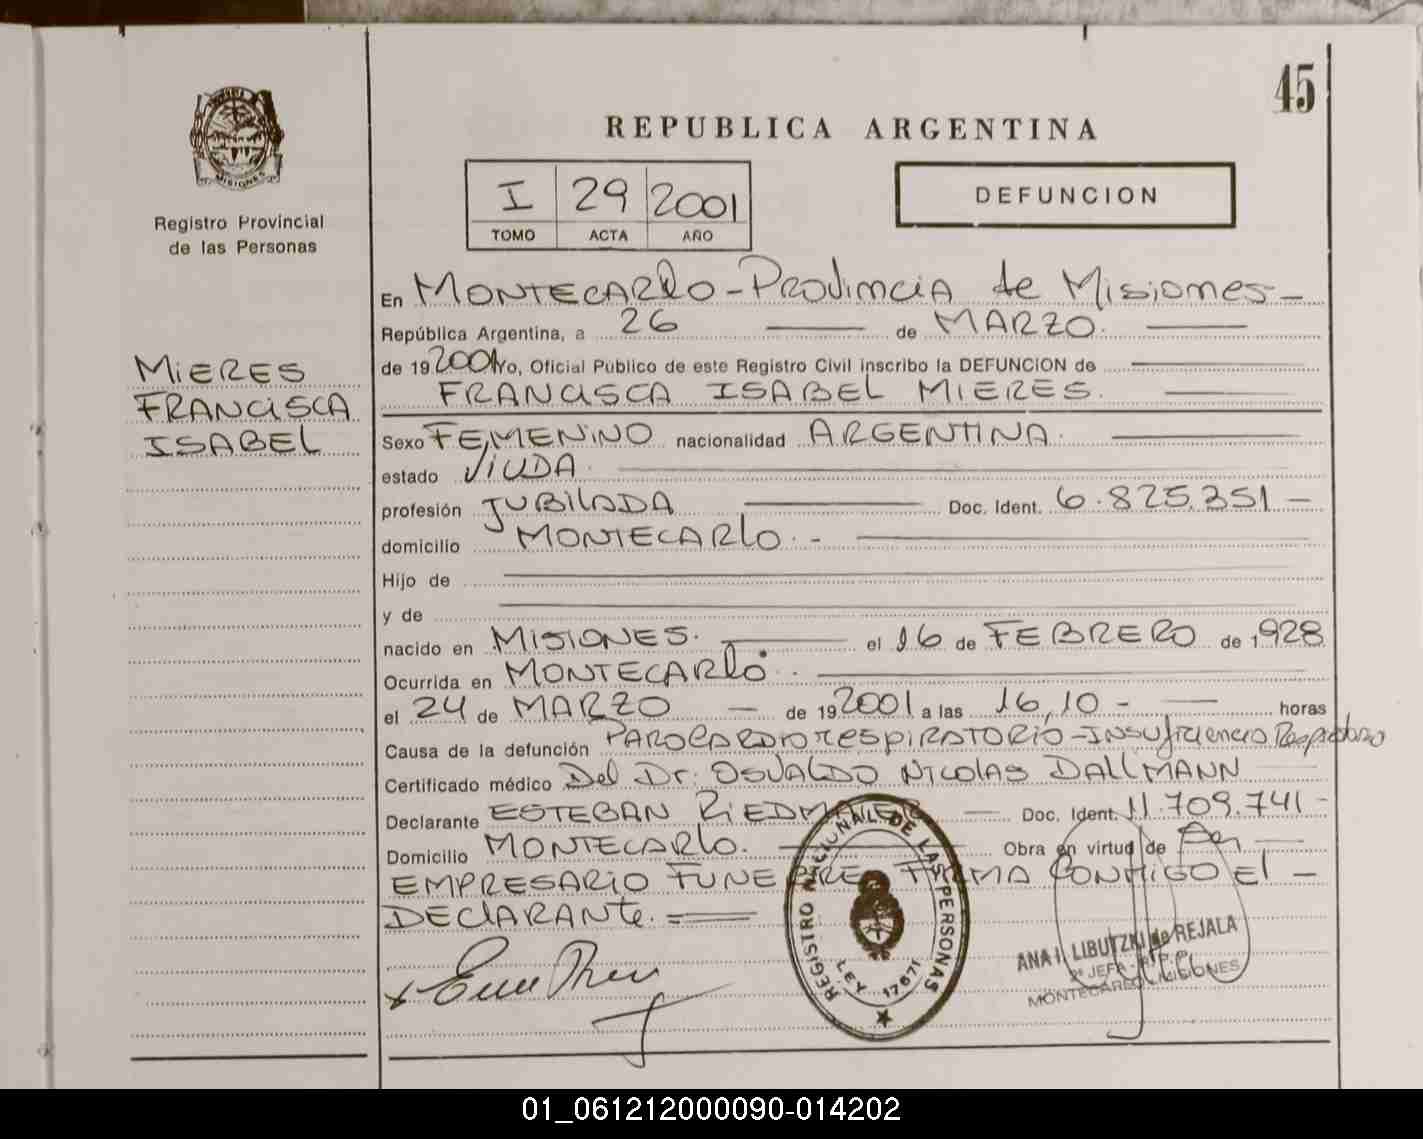 45
MISIONES
Registro Provincial
de las Personas
REPUBLICA ARGENTINA
I 29 2001
TOMO ACTA AÑO
DEFUNCION
MIERES
FRANCISCA
ISABEL
En MONTECARLO - PROVINCIA de MISIONES -
República Argentina, a 26 de MARZO.
de 19 2001 yo, Oficial Público de este Registro Civil inscribo la DEFUNCION de
FRANCISCA ISABEL MIERES.
Sexo FEMENINO nacionalidad ARGENTINA.
estado VIUDA.
profesión JUBILADA Doc. Ident. 6.825.351 -
domicilio MONTECARLO. -
Hijo de
y de
nacido en MISIONES. el 16 de FEBRERO de 1928
Ocurrida en MONTECARLO.
el 24 de MARZO - de 19 2001 a las 16,10 - horas
Causa de la defunción PAROCARDIORESPIRATORIO - INSUficiencia Respiratorio
Certificado médico Del Dr. OSVALDO NICOLAS DALLMANN
Declarante ESTEBAN RIEDMAIER Doc. Ident. 11.709.741 -
Domicilio MONTECARLO. Obra en virtud de Ser
EMPRESARIO FUNEBRE FIRMA CONMIGO El -
DEClARANTE.
REGISTRO NACIONAL DE LAS PERSONAS
LEY 17671
ANA I. LIBUTZKI de REJALA
MONTECARLO MISIONES
01_061212000090-014202